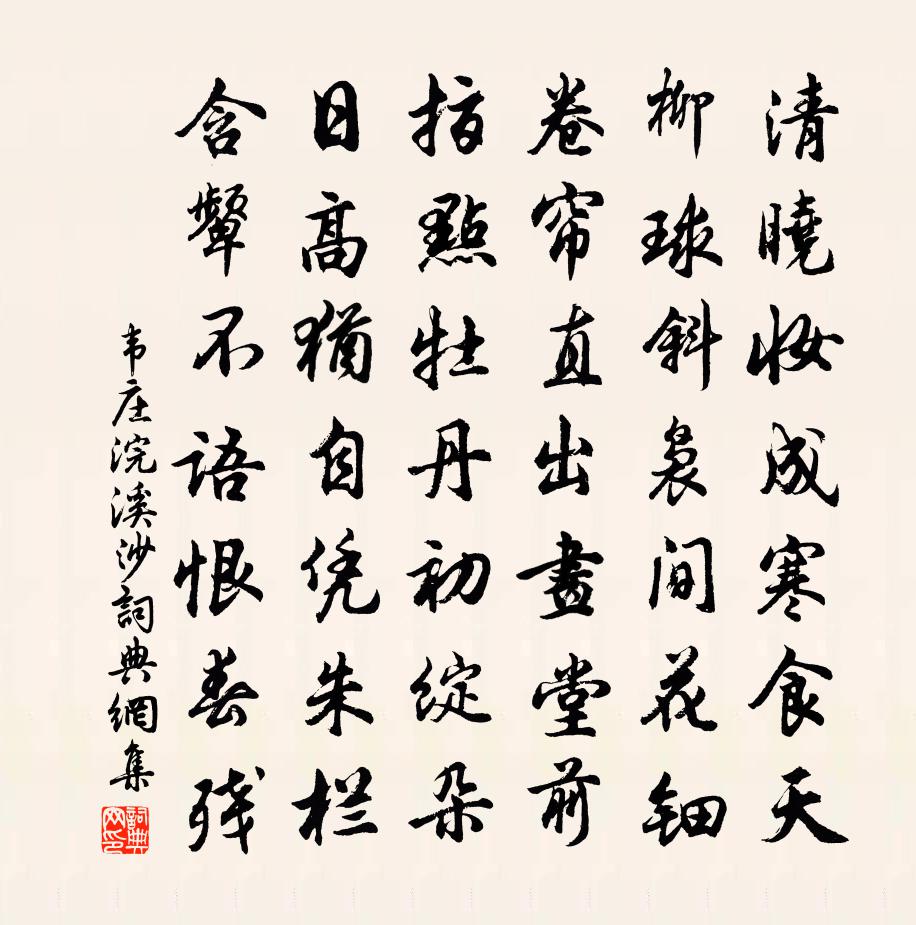 清曉妝成寒食天
柳球斜裊間花鈿
卷帘直出畫堂前
指點牡丹初綻朵
日高猶自凭朱栏
含顰不語恨春殘
韦庄浣溪沙詞典網集
詞典网印